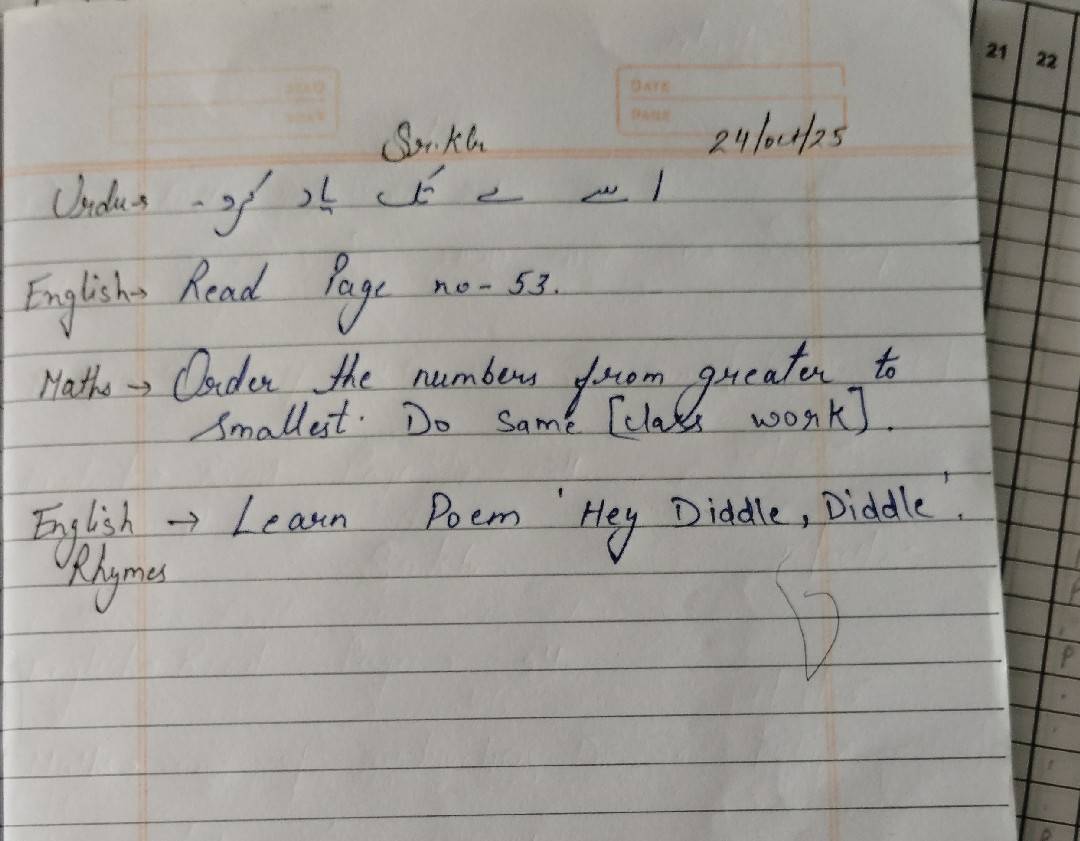 DATE
PAGE
Sr.kG 24/oct/25
Urdu → ا سے ے تک یاد کرو۔
English → Read Page no - 53.
Maths → Order the numbers from greater to
smallest. Do same [class work].
English → Learn Poem 'Hey Diddle, Diddle'.
Rhymes
21 22